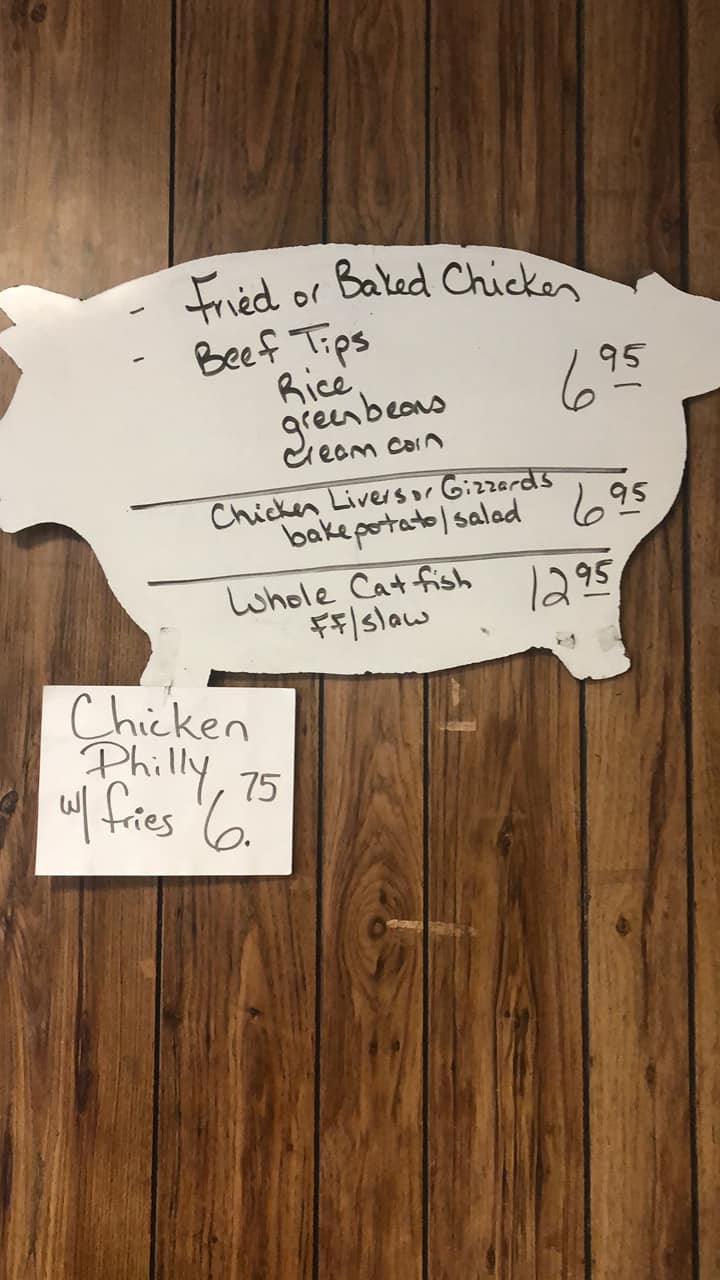 - Fried or Baked Chicken
- Beef Tips
Rice 6 95
greenbeans
cream corn
Chicken Livers or Gizzards 6 95
bake potato/salad
Whole Catfish 12 95
FF/slaw
Chicken
Philly
w/ fries 6. 75